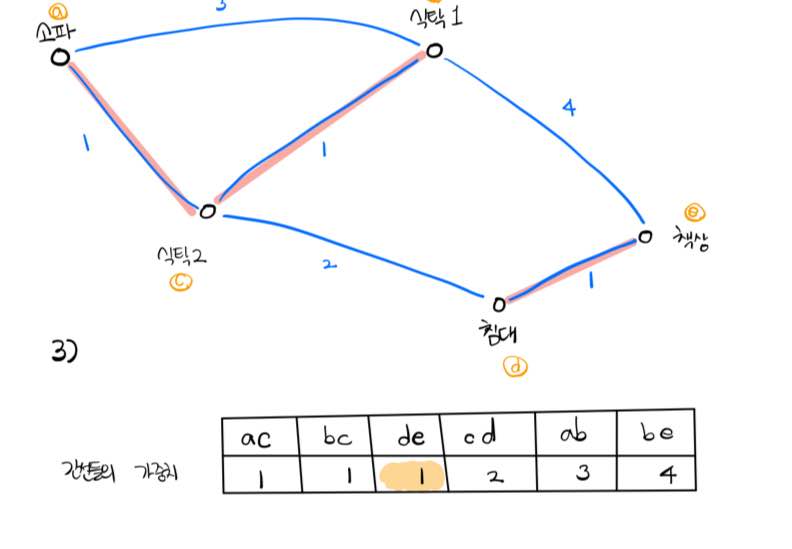 ⓐ
소파
3
식탁1
4
1
1
ⓔ
책상
식탁2
2
1
ⓒ
침대
3)
ⓓ
ac bc de cd ab be
간선들의 가중치 1 1 1 2 3 4